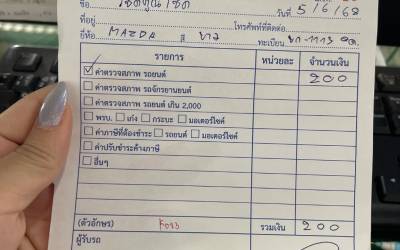 ชื่อ วันที่ 5/6/69
ที่อยู่ โทรศัพท์ที่ติดต่อ
ยี่ห้อ MAZDA สี ขาว ทะเบียน
รายการ หน่วยละ จำนวนเงิน
ค่าตรวจสภาพ รถยนต์ 200
ค่าตรวจสภาพ รถจักรยานยนต์
ค่าตรวจสภาพ รถยนต์ เกิน 2,000
พรบ. เก๋ง กระบะ มอเตอร์ไซค์
ค่าภาษีที่ต้องชำระ รถยนต์ มอเตอร์ไซค์
ค่าปรับชำระล้าภาษี
อื่นๆ
(ตัวอักษร) รวมเงิน 200
ผู้รับรถ